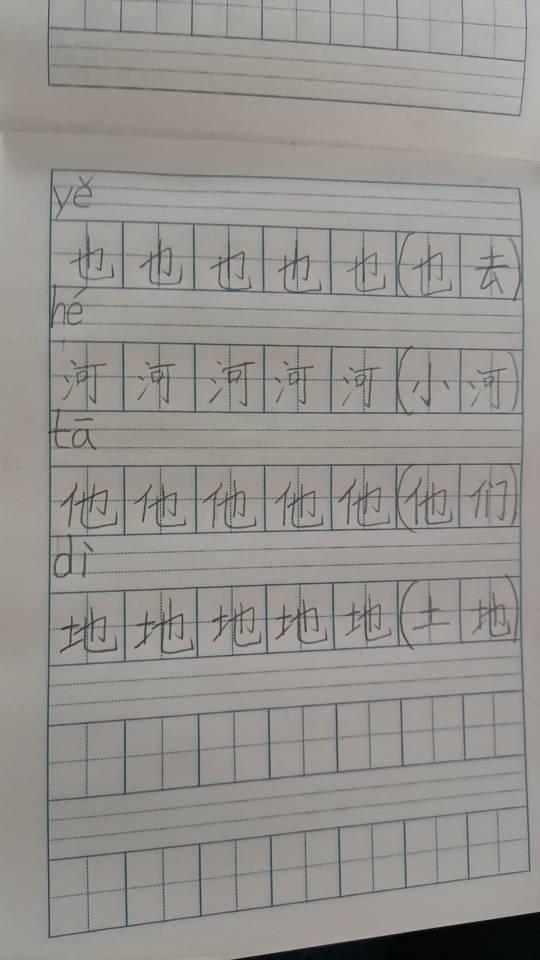 yě
也也也也也(也去)
hé
河河河河河(小河)
tā
他他他他他(他们)
dì
地地地地地(土地)